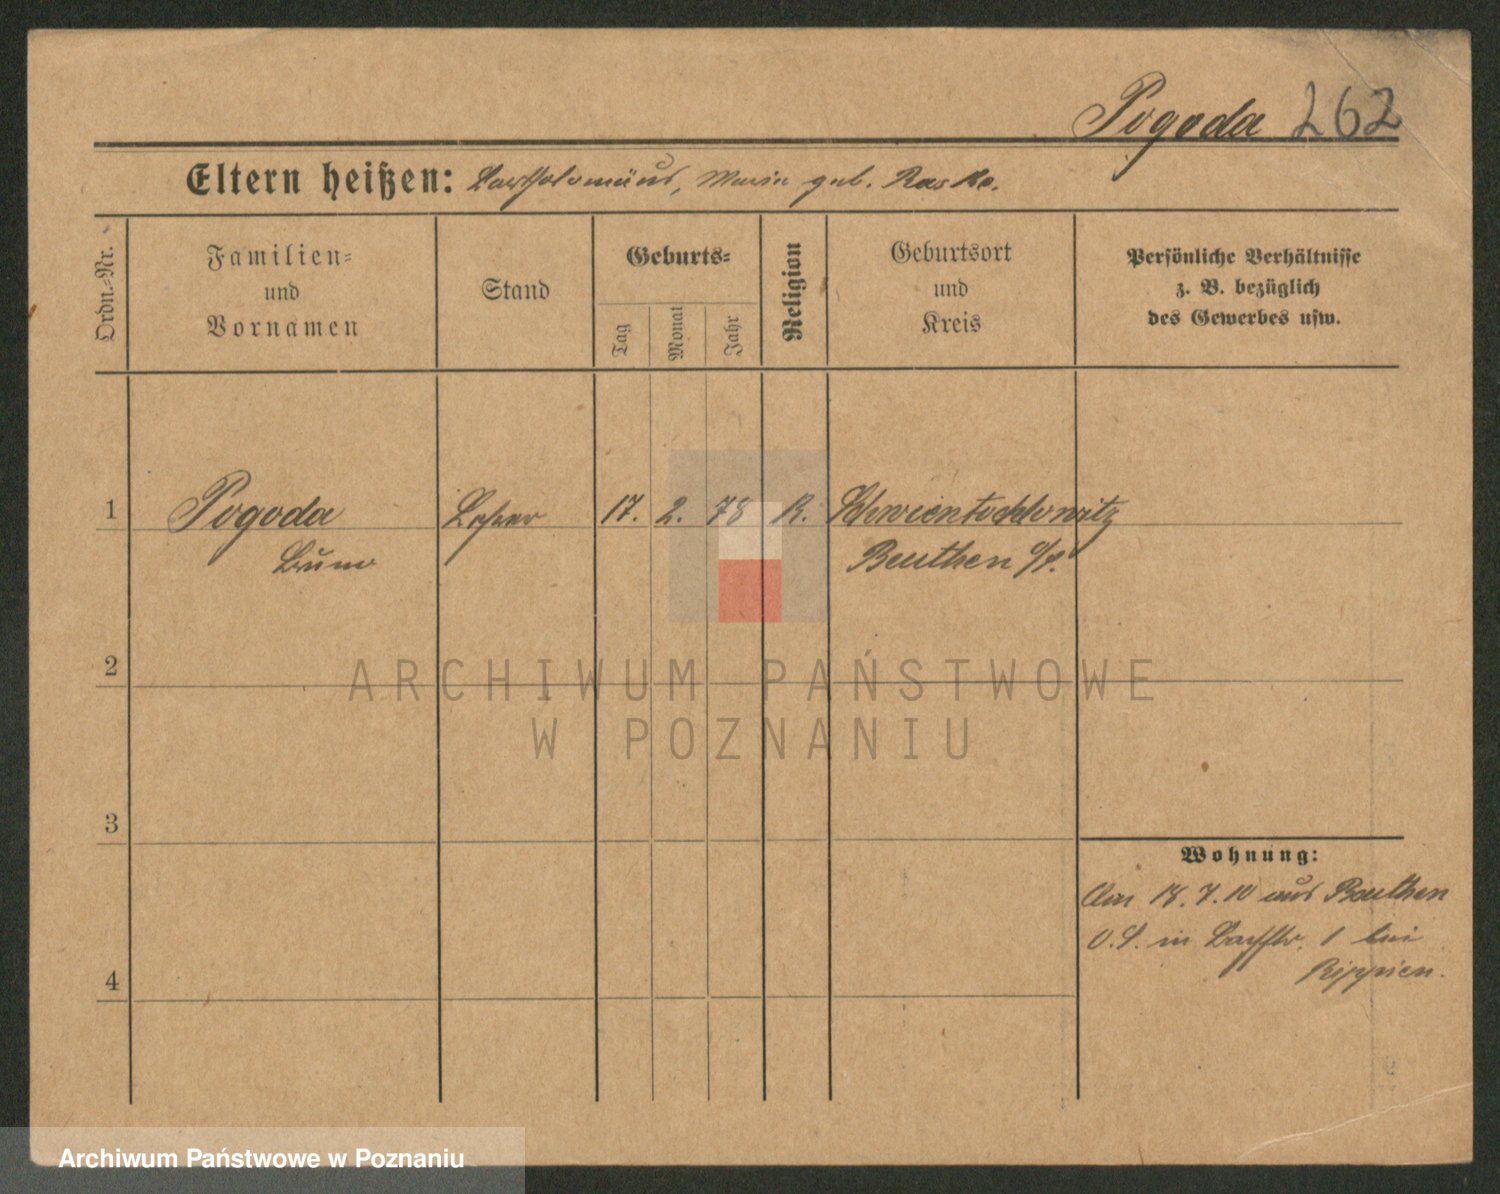 Pogoda 262
Eltern heißen: Bartholomäus, Maria geb. Raske.
Ordn.-Nr.
Familien-
und
Vornamen
Stand
Geburts-
Tag
Monat
Jahr
Religion
Geburtsort
und
Kreis
Persönliche Verhältnisse
z. B. bezüglich
des Gewerbes usw.
1 Pogoda Lehrer 17. 2. 78 R. Schwientochlowitz
Beuthen O/S.
2
ARCHIWUM PAŃSTWOWE
W POZNANIU
3
Wohnung:
Am 18.7.10 aus Beuthen
O.S. in 1 bei
4
Archiwum Państwowe w Poznaniu